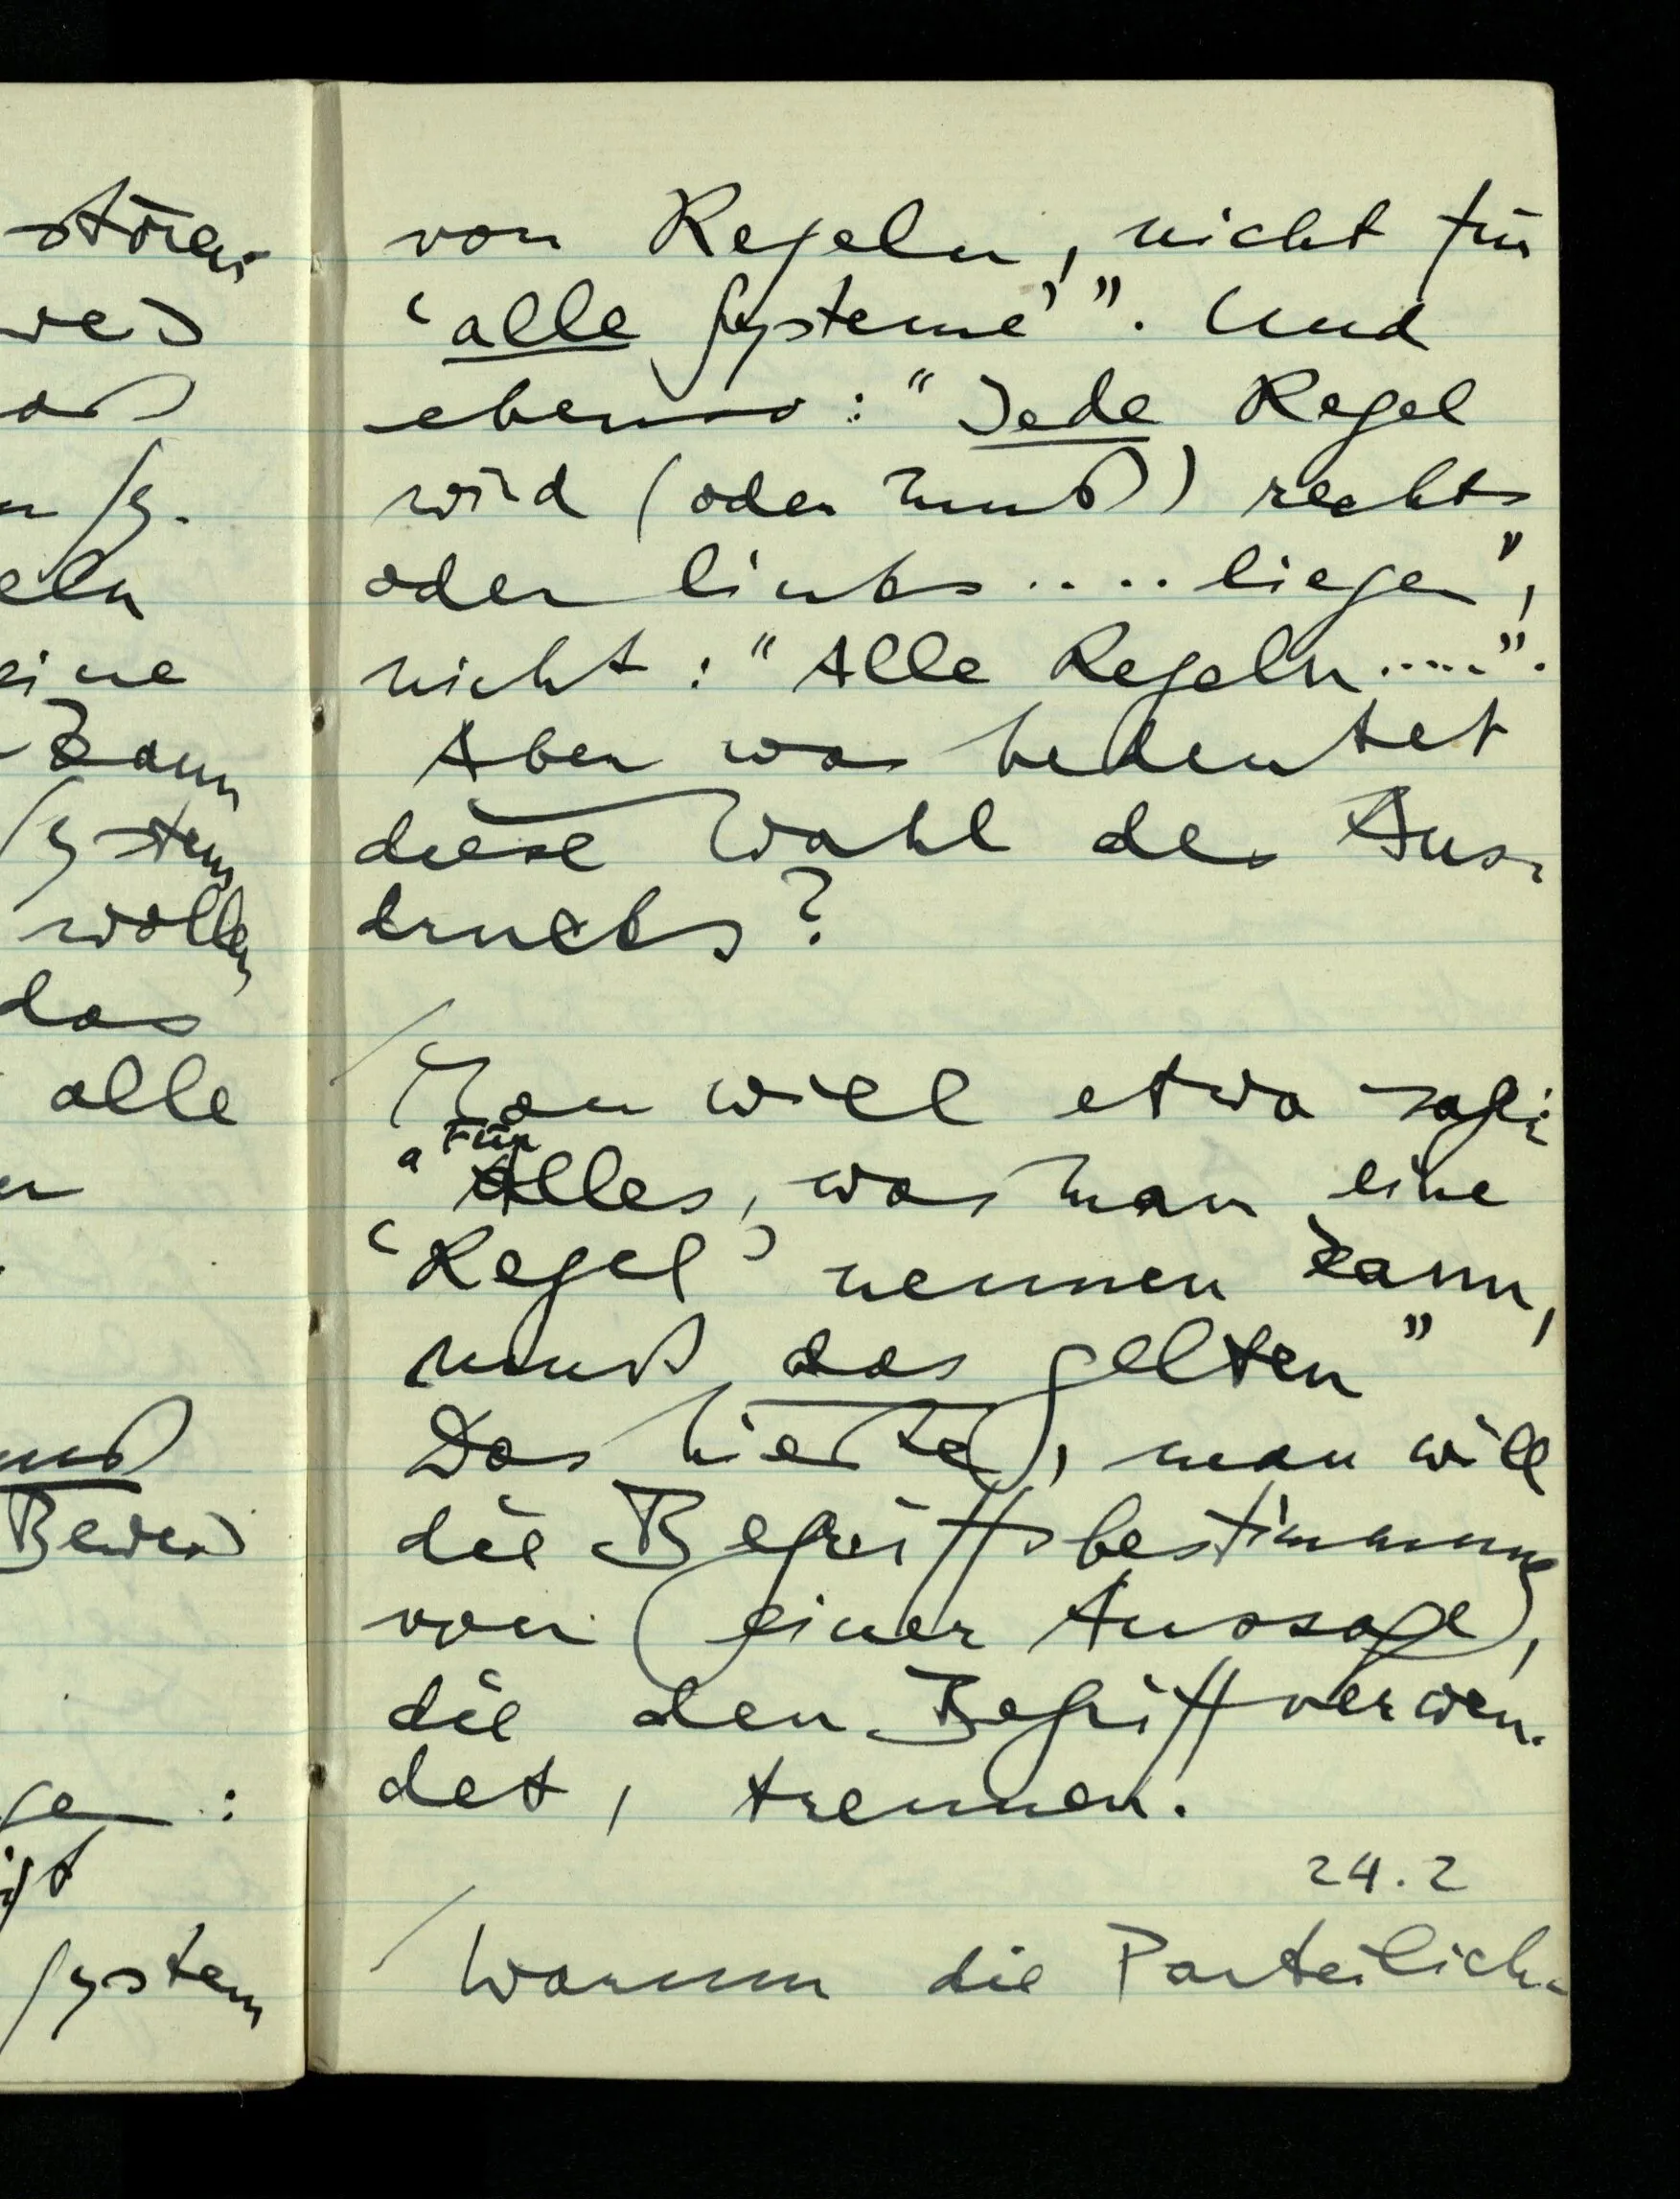 stören
wei
daß
Sy.
eln
eine
kann
System
wollen
das
alle
muß
Bewei
gen :
igt
System
von Regeln, nicht für
‘alle Systeme’”. Und
ebenso: “Jede Regel
wird (oder muß) rechts
oder links .... liegen”,
nicht: “Alle Regeln .....”.
Aber was bedeutet
diese Wahl des Aus-
drucks?
Man will etwa sagen:
“Für
Alles, was man eine
‘Regel’ nennen kann,
muß das gelten”
Das hieße, man will
die Begriffsbestimmung
von einer Aussage,
die den Begriff verwen-
det, trennen.
24.2
Warum die Parteilich-